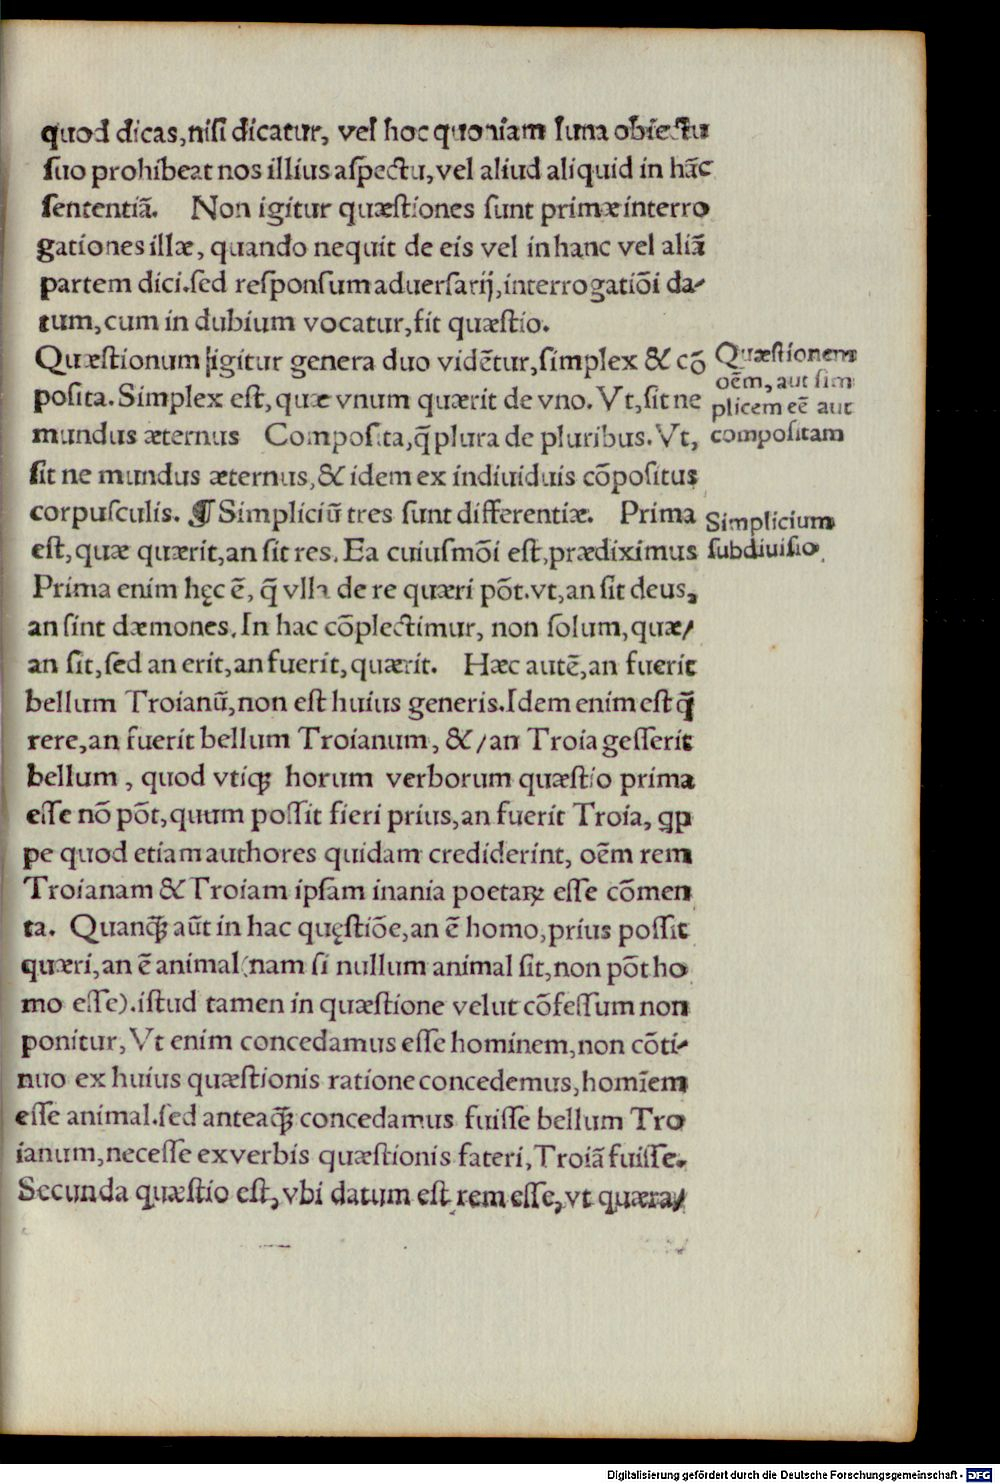 quod dicas,nisi dicatur, vel hoc quoniam luna obiectu
suo prohibeat nos illius aspectu,vel aliud aliquid in hāc
sententiā. Non igitur quæstiones sunt primæ interro
gationes illæ, quando nequit de eis vel in hanc vel aliā
partem dici.sed responsum aduersarij,interrogatiōi da-
tum,cum in dubium vocatur,fit quæstio.
Quæstionum igitur genera duo vidētur,simplex & cō
posita. Simplex est, quæ vnum quærit de vno. Vt,sit ne
mundus æternus Composita,q̄ plura de pluribus. Vt,
sit ne mundus æternus,& idem ex indiuiduis cōpositus
corpusculis. ¶ Simpliciū tres sunt differentiæ. Prima
est,quæ quærit,an sit res. Ea cuiusmōi est,prædiximus
Prima enim hęc ē, q̄ vlla de re quæri pōt.vt,an sit deus,
an sint dæmones. In hac cōplectimur, non solum,quæ/
an sit,sed an erit,an fuerit,quærit. Hæc autē,an fuerit
bellum Troianū,non est huius generis.Idem enim est q̄
rere,an fuerit bellum Troianum, &/an Troia gesserit
bellum, quod vtiqꝫ horum verborum quæstio prima
esse nō pōt,quum possit fieri prius,an fuerit Troia, ꝗp
pe quod etiam authores quidam crediderint, oēm rem
Troianam & Troiam ipsam inania poetaꝝ esse cōmen
ta. Quanqꝫ aūt in hac quęstiōe,an ē homo,prius possit
quæri,an ē animal(nam si nullum animal sit,non pōt ho
mo esse).istud tamen in quæstione velut cōfessum non
ponitur, Vt enim concedamus esse hominem,non cōti-
nuo ex huius quæstionis ratione concedemus,homīem
esse animal.sed anteaqꝫ concedamus fuisse bellum Tro
ianum,necesse ex verbis quæstionis fateri,Troiā fuisse.
Secunda quæstio est, vbi datum est rem esse, vt quæra/
Quæstionem
oēm, aut sim
plicem eē aut
compositam
Simplicium
subdiuisio.
Digitalisierung gefördert durch die Deutsche Forschungsgemeinschaft - DFG